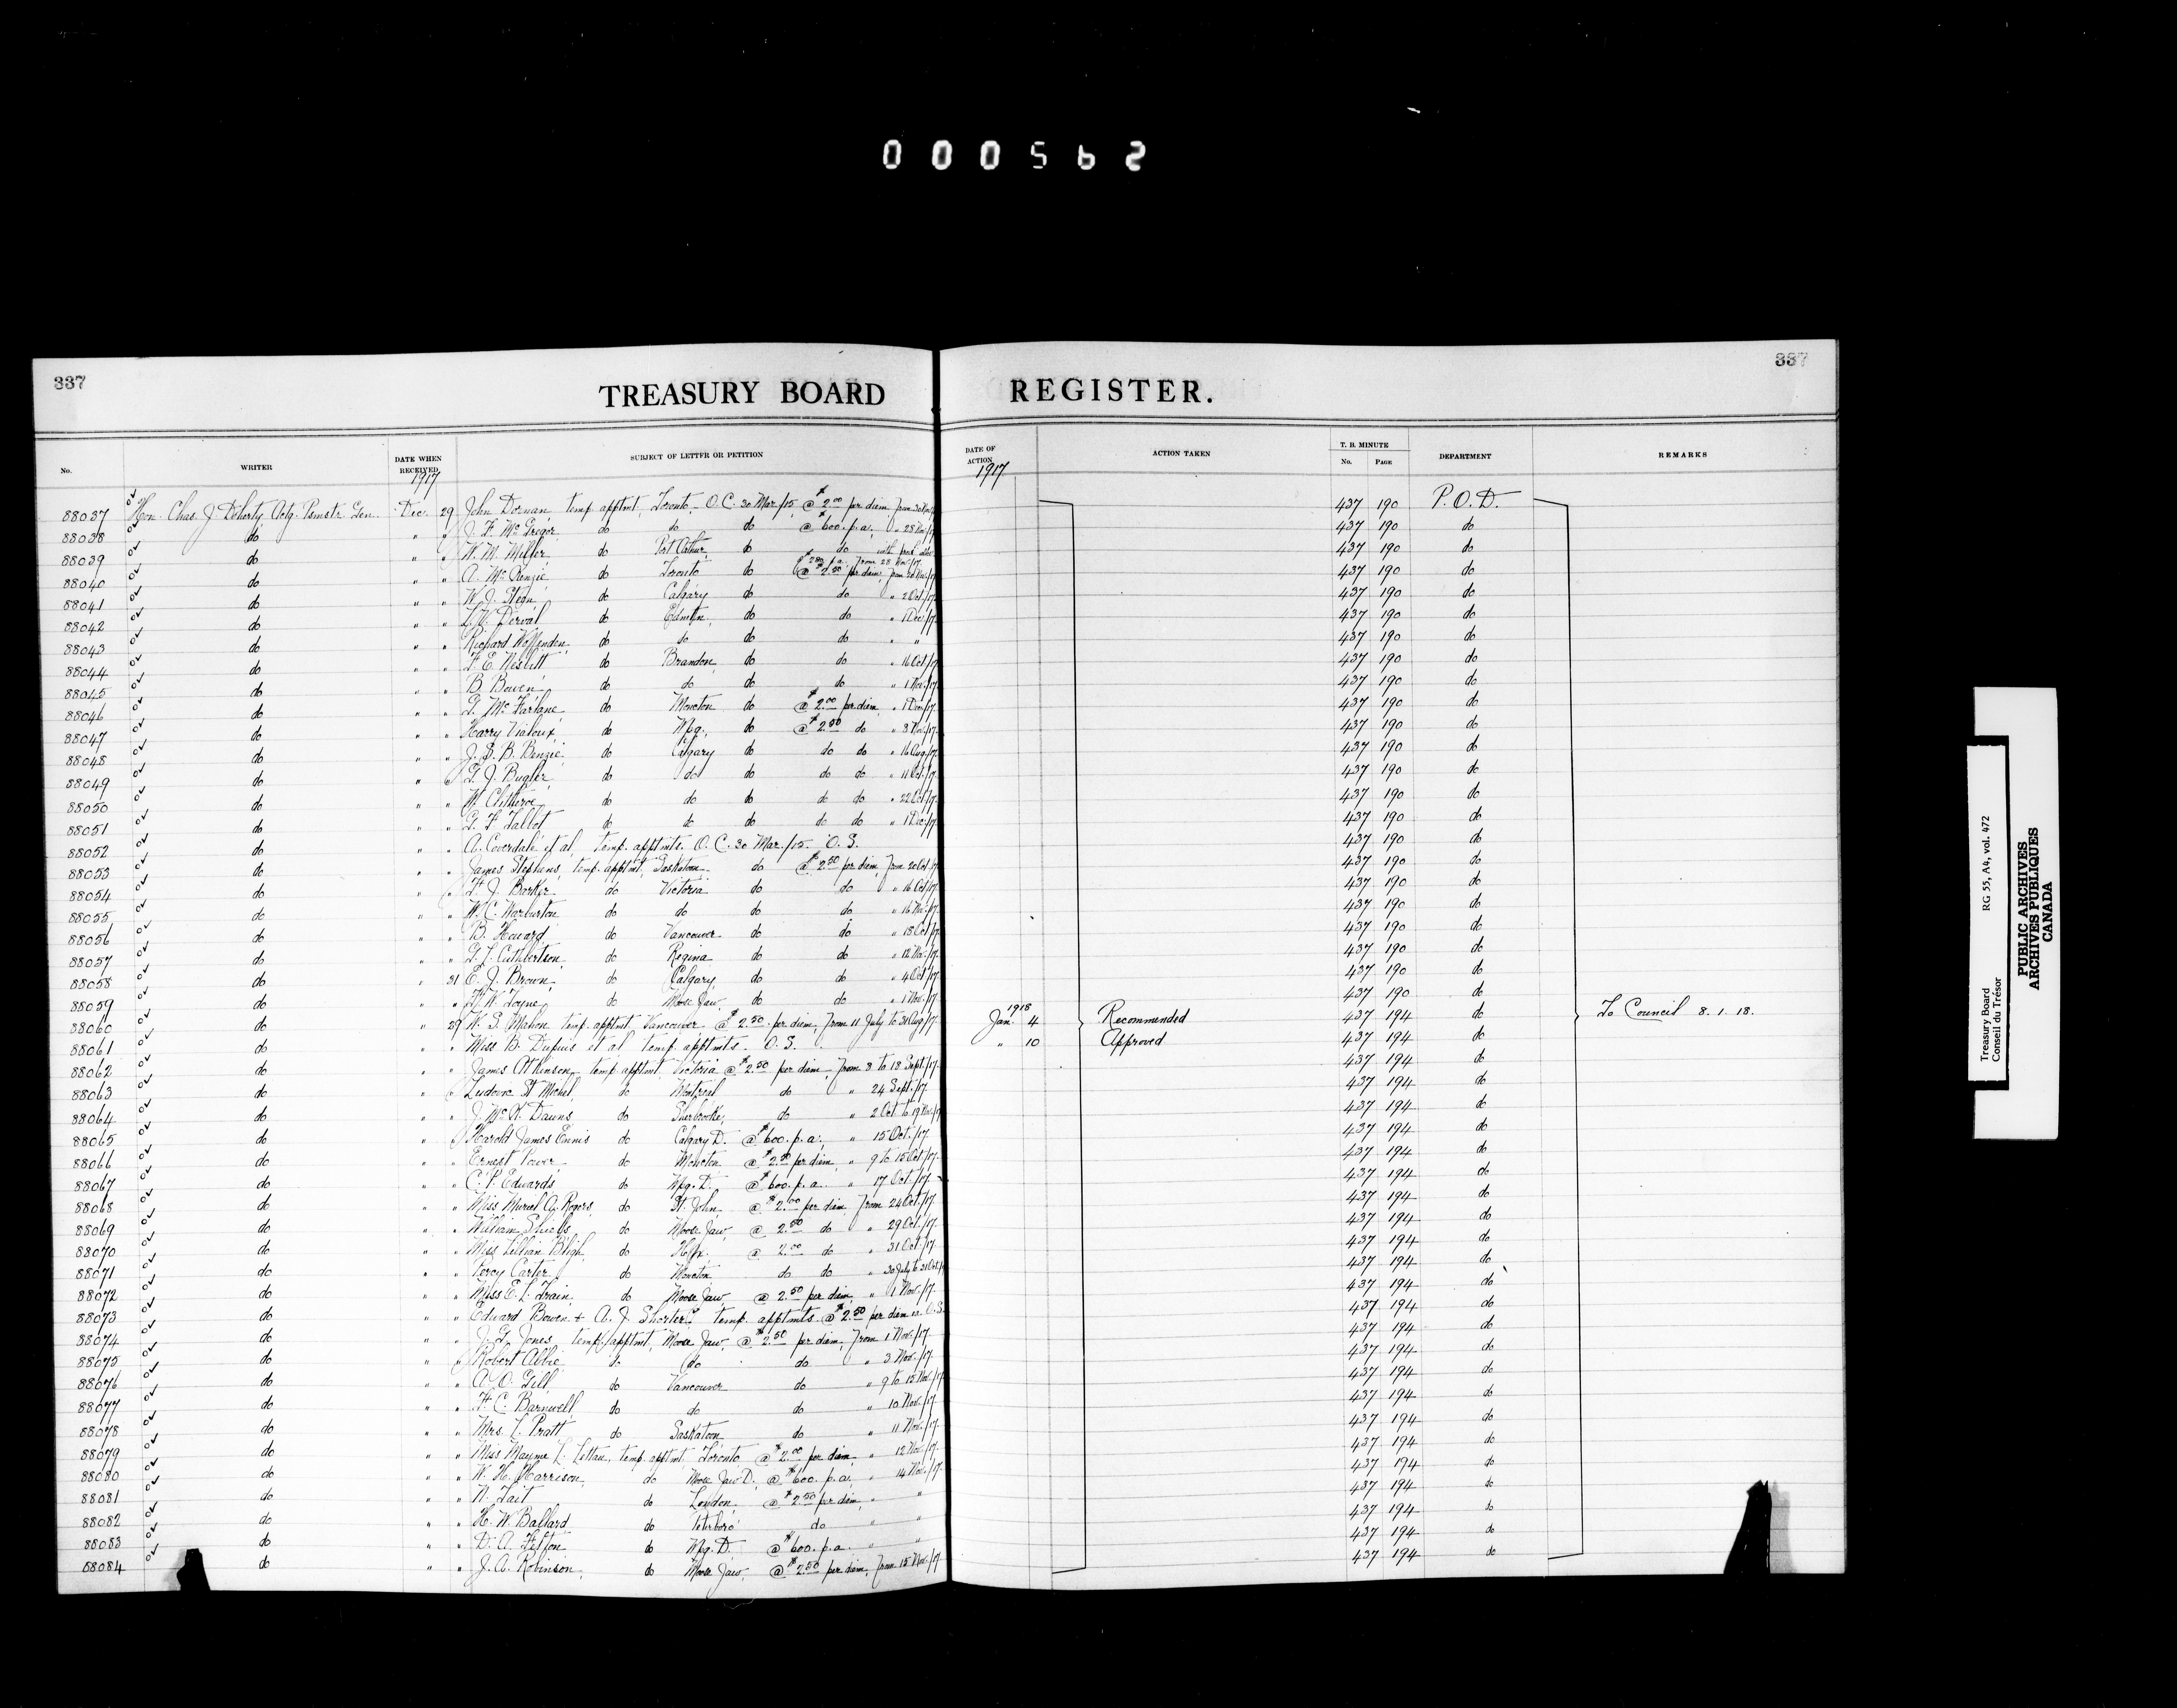 000562
337
337
TREASURY BOARD REGISTER.
No. WRITER DATE WHEN RECEIVED SUBJECT OF LETTER OR PETITION DATE OF ACTION ACTION TAKEN T. B. MINUTE No. PAGE DEPARTMENT REMARKS
1917 1917
88037 Hon. Chas. J. Doherty, Actg. Psmstr. Gen. Dec. 29 John Dornan, temp. apptmt, Toronto, O.C. 30 Mar./15, @ $2.00 per diem, from 30 Nov/17 437 190 P.O.D.
88038 do " " J. F. McGregor, do do do @ $600. p.a., " 28 Nov/17 437 190 do
88039 do " " W. M. Miller, do Port Arthur, do do with prov. allce 437 190 do
88040 do " " A. McKenzie do Toronto do @ $2.50 per diem, from 437 190 do
88041 do " " W. J. do Calgary do do " 2 Oct/17 437 190 do
88042 do " " do Edmton, do do " 1 Dec/17 437 190 do
88043 do " " Richard Woffenden, do do do do " " 437 190 do
88044 do " " F. E. Nesbitt do Brandon, do do " 16 Oct/17 437 190 do
88045 do " " B. Bowen do do do do " 1 Nov/17 437 190 do
88046 do " " G. McFarlane, do Moncton do @ $2.00 per diem, " 1 Dec/17 437 190 do
88047 do " " Harry Vialoux, do Wpg., do @ $2.50 do " 3 Nov/17 437 190 do
88048 do " " J. S. B. Benzie, do Calgary do do do " 16 Aug/17 437 190 do
88049 do " " G. J. Bugler, do do do do do " 11 Oct/17 437 190 do
88050 do " " W. Clitheroe, do do do do do " 22 Oct/17 437 190 do
88051 do " " G. F. Talbot do do do do do " 1 Dec/17 437 190 do
88052 do " " A. Coverdale et al, temp. apptmts. O.C. 30 Mar./15. O.S. 437 190 do
88053 do " " James Stephens, temp. apptmt, Saskatoon, do @ $2.50 per diem, from 20 Oct/17 437 190 do
88054 do " " H. J. Barker do Victoria do do " 16 Oct/17 437 190 do
88055 do " " W. C. Warburton do do do do " 16 Nov/17 437 190 do
88056 do " " B. Howard do Vancouver do do " 18 Oct/17 437 190 do
88057 do " " G. L. Cuthbertson, do Regina do do " 12 Nov/17 437 190 do
88058 do " 31 E. J. Brown, do Calgary, do do " 4 Oct/17 437 190 do
88059 do " " H. W. Toyne, do Moose Jaw, do do " 1 Nov./17 437 190 do
88060 do " 29 W. S. Mahon temp. apptmt Vancouver @ $2.50 per diem, from 11 July to 31 Aug/17 1918 Jan. 4 Recommended 437 194 do To Council 8.1.18.
88061 do " " Miss B. Dupuis et al temp. apptmts. O.S. " 10 Approved 437 194 do
88062 do " " James Atkinson, temp. apptmt, Victoria @ $2.50 per diem, from 3 to 18 Sept/17. 437 194 do
88063 do " " Ludovic St Michel, do Montreal do " 24 Sept./17. 437 194 do
88064 do " " do Sherbrooke, do " 2 Oct to 19 Nov/17 437 194 do
88065 do " " Harold James Ennis do Calgary D. @ $600. p.a., " 15 Oct./17. 437 194 do
88066 do " " Ernest Power, do Moncton @ $2.00 per diem, " 9 to 15 Oct/17. 437 194 do
88067 do " " C. P. Edwards do Wpg. D. @ $600. p.a. " 17 Oct./17. 437 194 do
88068 do " " Miss Muriel A. Rogers, do St. John, @ $2.00 per diem from 24 Oct./17. 437 194 do
88069 do " " William Shields, do Moose Jaw, @ 2.50 do " 29 Oct./17. 437 194 do
88070 do " " Miss Lillian Bligh do Hfx. @ 2.00 do " 31 Oct./17. 437 194 do
88071 do " " Percy Carter, do Moncton do do " 30 July to 31 Oct/17 437 194 do
88072 do " " Miss E. L. Train, do Moose Jaw @ 2.50 per diem, " 1 Nov./17. 437 194 do
88073 do " " Edward Bowen & A. J. Shorter, temp. apptmts. @ $2.50 per diem ea. O.S. 437 194 do
88074 do " " J. G. Jones, temp. apptmt, Moose Jaw, @ $2.50 per diem, from 1 Nov./17. 437 194 do
88075 do " " Robert Abbie do do do " 3 Nov./17. 437 194 do
88076 do " " A. O. Gill, do Vancouver do " 9 to 15 Nov./17 437 194 do
88077 do " " H. C. Barnwell, do do do " 10 Nov./17. 437 194 do
88078 do " " Mrs. L. Pratt, do Saskatoon do " 11 Nov./17. 437 194 do
88079 do " " Miss Mayme L. temp. apptmt, Toronto, @ $2.00 per diem " 12 Nov./17. 437 194 do
88080 do " " W. H. Harrison, do Moose Jaw D., @ $600. p.a., " 14 Nov./17. 437 194 do
88081 do " " N. Tait do London, @ $2.50 per diem, " " 437 194 do
88082 do " " H. W. Ballard do Peterboro' do " " 437 194 do
88083 do " " D. A. do Wpg. D. @ $600. p.a. " " 437 194 do
88084 do " " J. A. Robinson, do Moose Jaw, @ $2.50 per diem, from 15 Nov./17 437 194 do
Treasury Board RG 55, A4, vol. 472
Conseil du Trésor
PUBLIC ARCHIVES
ARCHIVES PUBLIQUES
CANADA